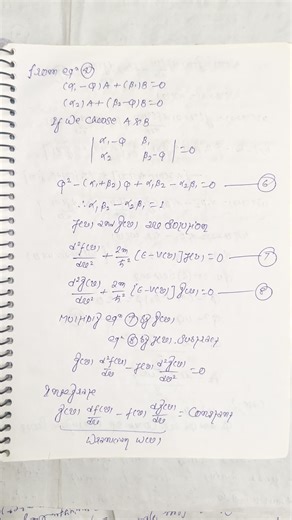 from eqⁿ ④
(α₁-Q)A+(β₁)B=0
(α₂)A+(β₂-Q)B=0
If we choose A & B
| α₁-Q β₁ |
| α₂ β₂-Q | =0
Q²-(α₁+β₂)Q+α₁β₂-α₂β₁=0 — ⑥
∴α₁β₂-α₂β₁=1
f(x) and g(x) are solution
d²f(x)/dx² + 2m/ħ² [E-V(x)]f(x)=0 — ⑦
d²g(x)/dx² + 2m/ħ² [E-V(x)]g(x)=0 — ⑧
Multiply eqⁿ ⑦ by g(x)
eqⁿ ⑧ by f(x), subtract
g(x) d²f(x)/dx² - f(x) d²g(x)/dx² =0
Integrate
g(x) df(x)/dx - f(x) dg(x)/dx = Constant
W(x)